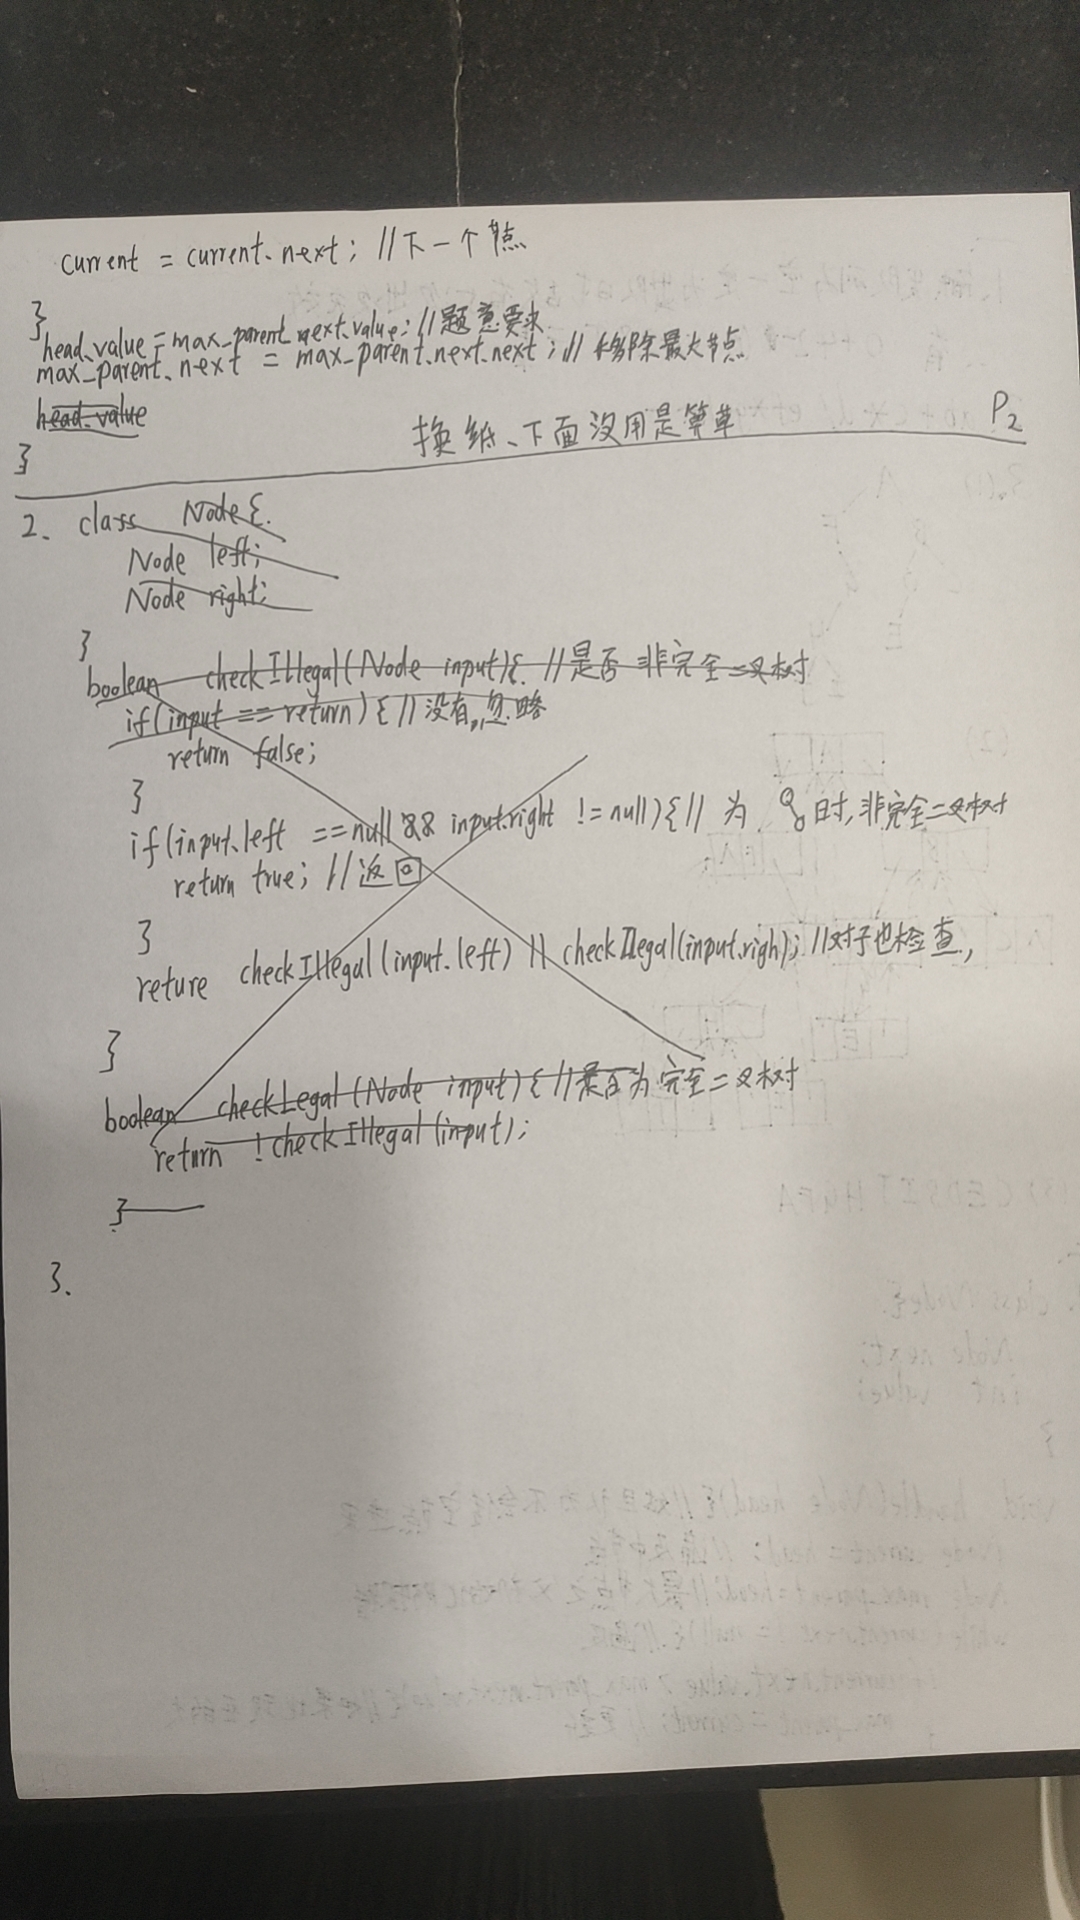 current = current.next; //下一个节点
}
head.value = max_parent.next.value; //题意要求
max_parent.next = max_parent.next.next; // 移除最大节点
head.value
换纸、下面没用是算草 P2
}
2. class Node{.
Node left;
Node right;
}
boolean checkIllegal(Node input){. //是否 非完全二叉树
if(input == return) { //没有,忽略
return false;
}
if(input.left ==null && input.right != null){ // 为 时,非完全二叉树
return true; //返回
}
reture checkIllegal(input.left) || checkIlegal(input.righ); //对子也检查,
}
boolean checkLegal(Node input) { //是否为完全二叉树
return !checkIllegal(input);
}
3.